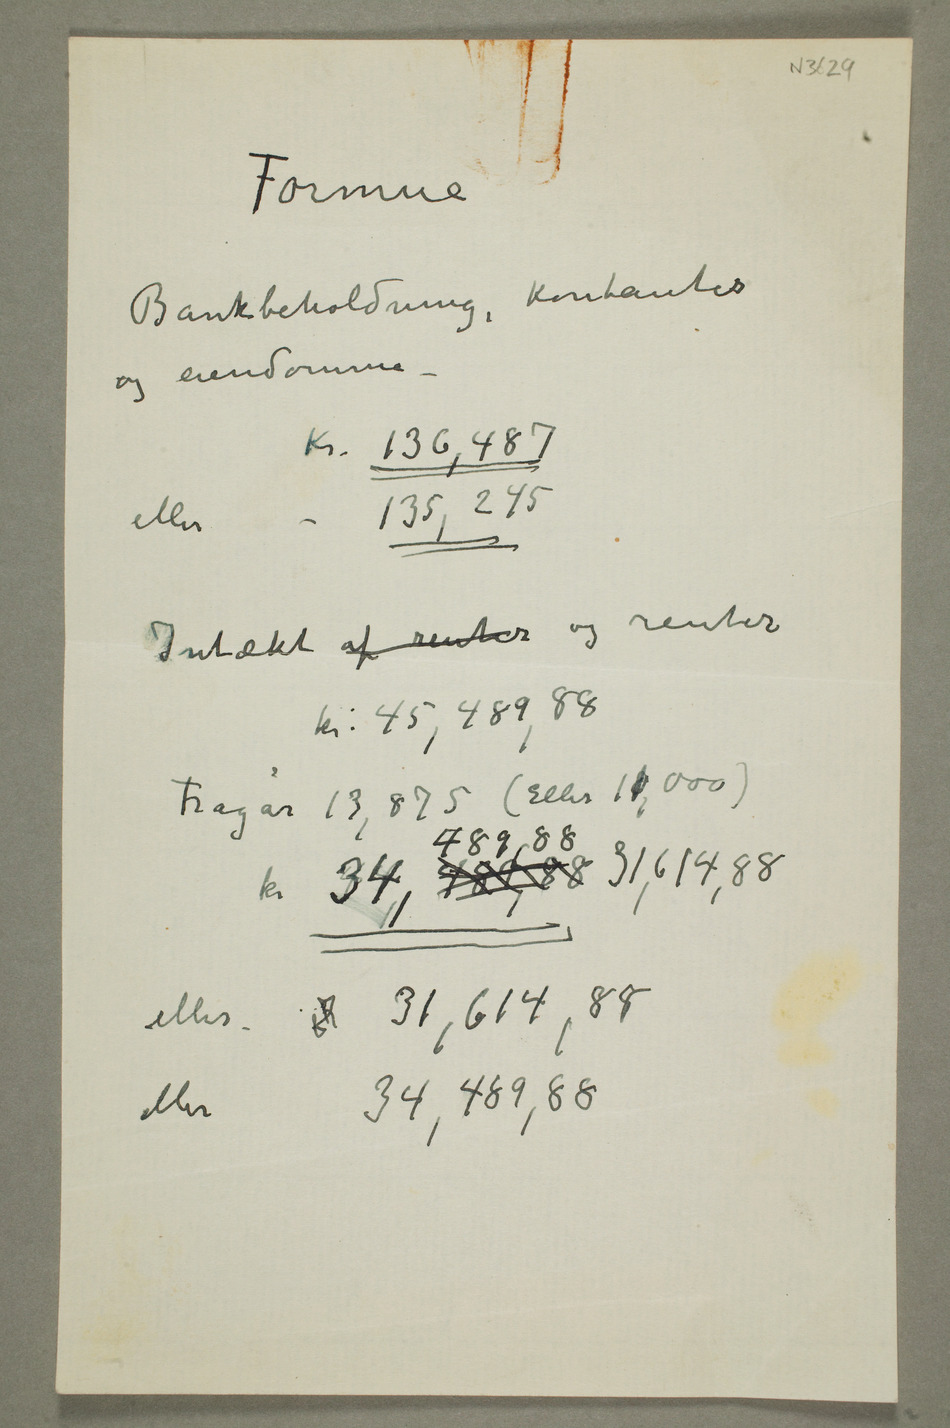 N3629
Formue
Bankbeholdning, Kontanter
og eiendomme –
Kr. 136,487
eller – 135,245
Intækt af renter og renter
kr: 45,489,88
Fragår 13,875 (Eller 11,000)
489,88
kr 34, 489,88 31,614,88
eller – 31,614,88
eller 34,489,88